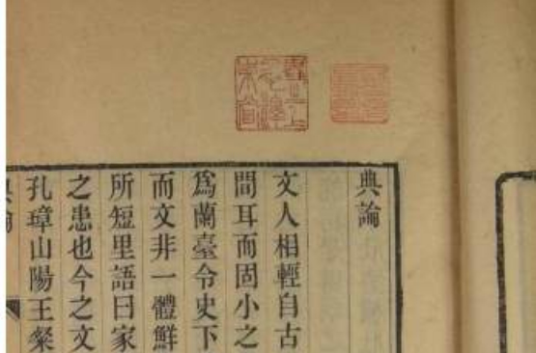 典論
文人相輕自古
間耳而固小之
爲蘭臺令史下
而文非一體鮮
所短里語曰家
之患也今之文
孔璋山陽王粲